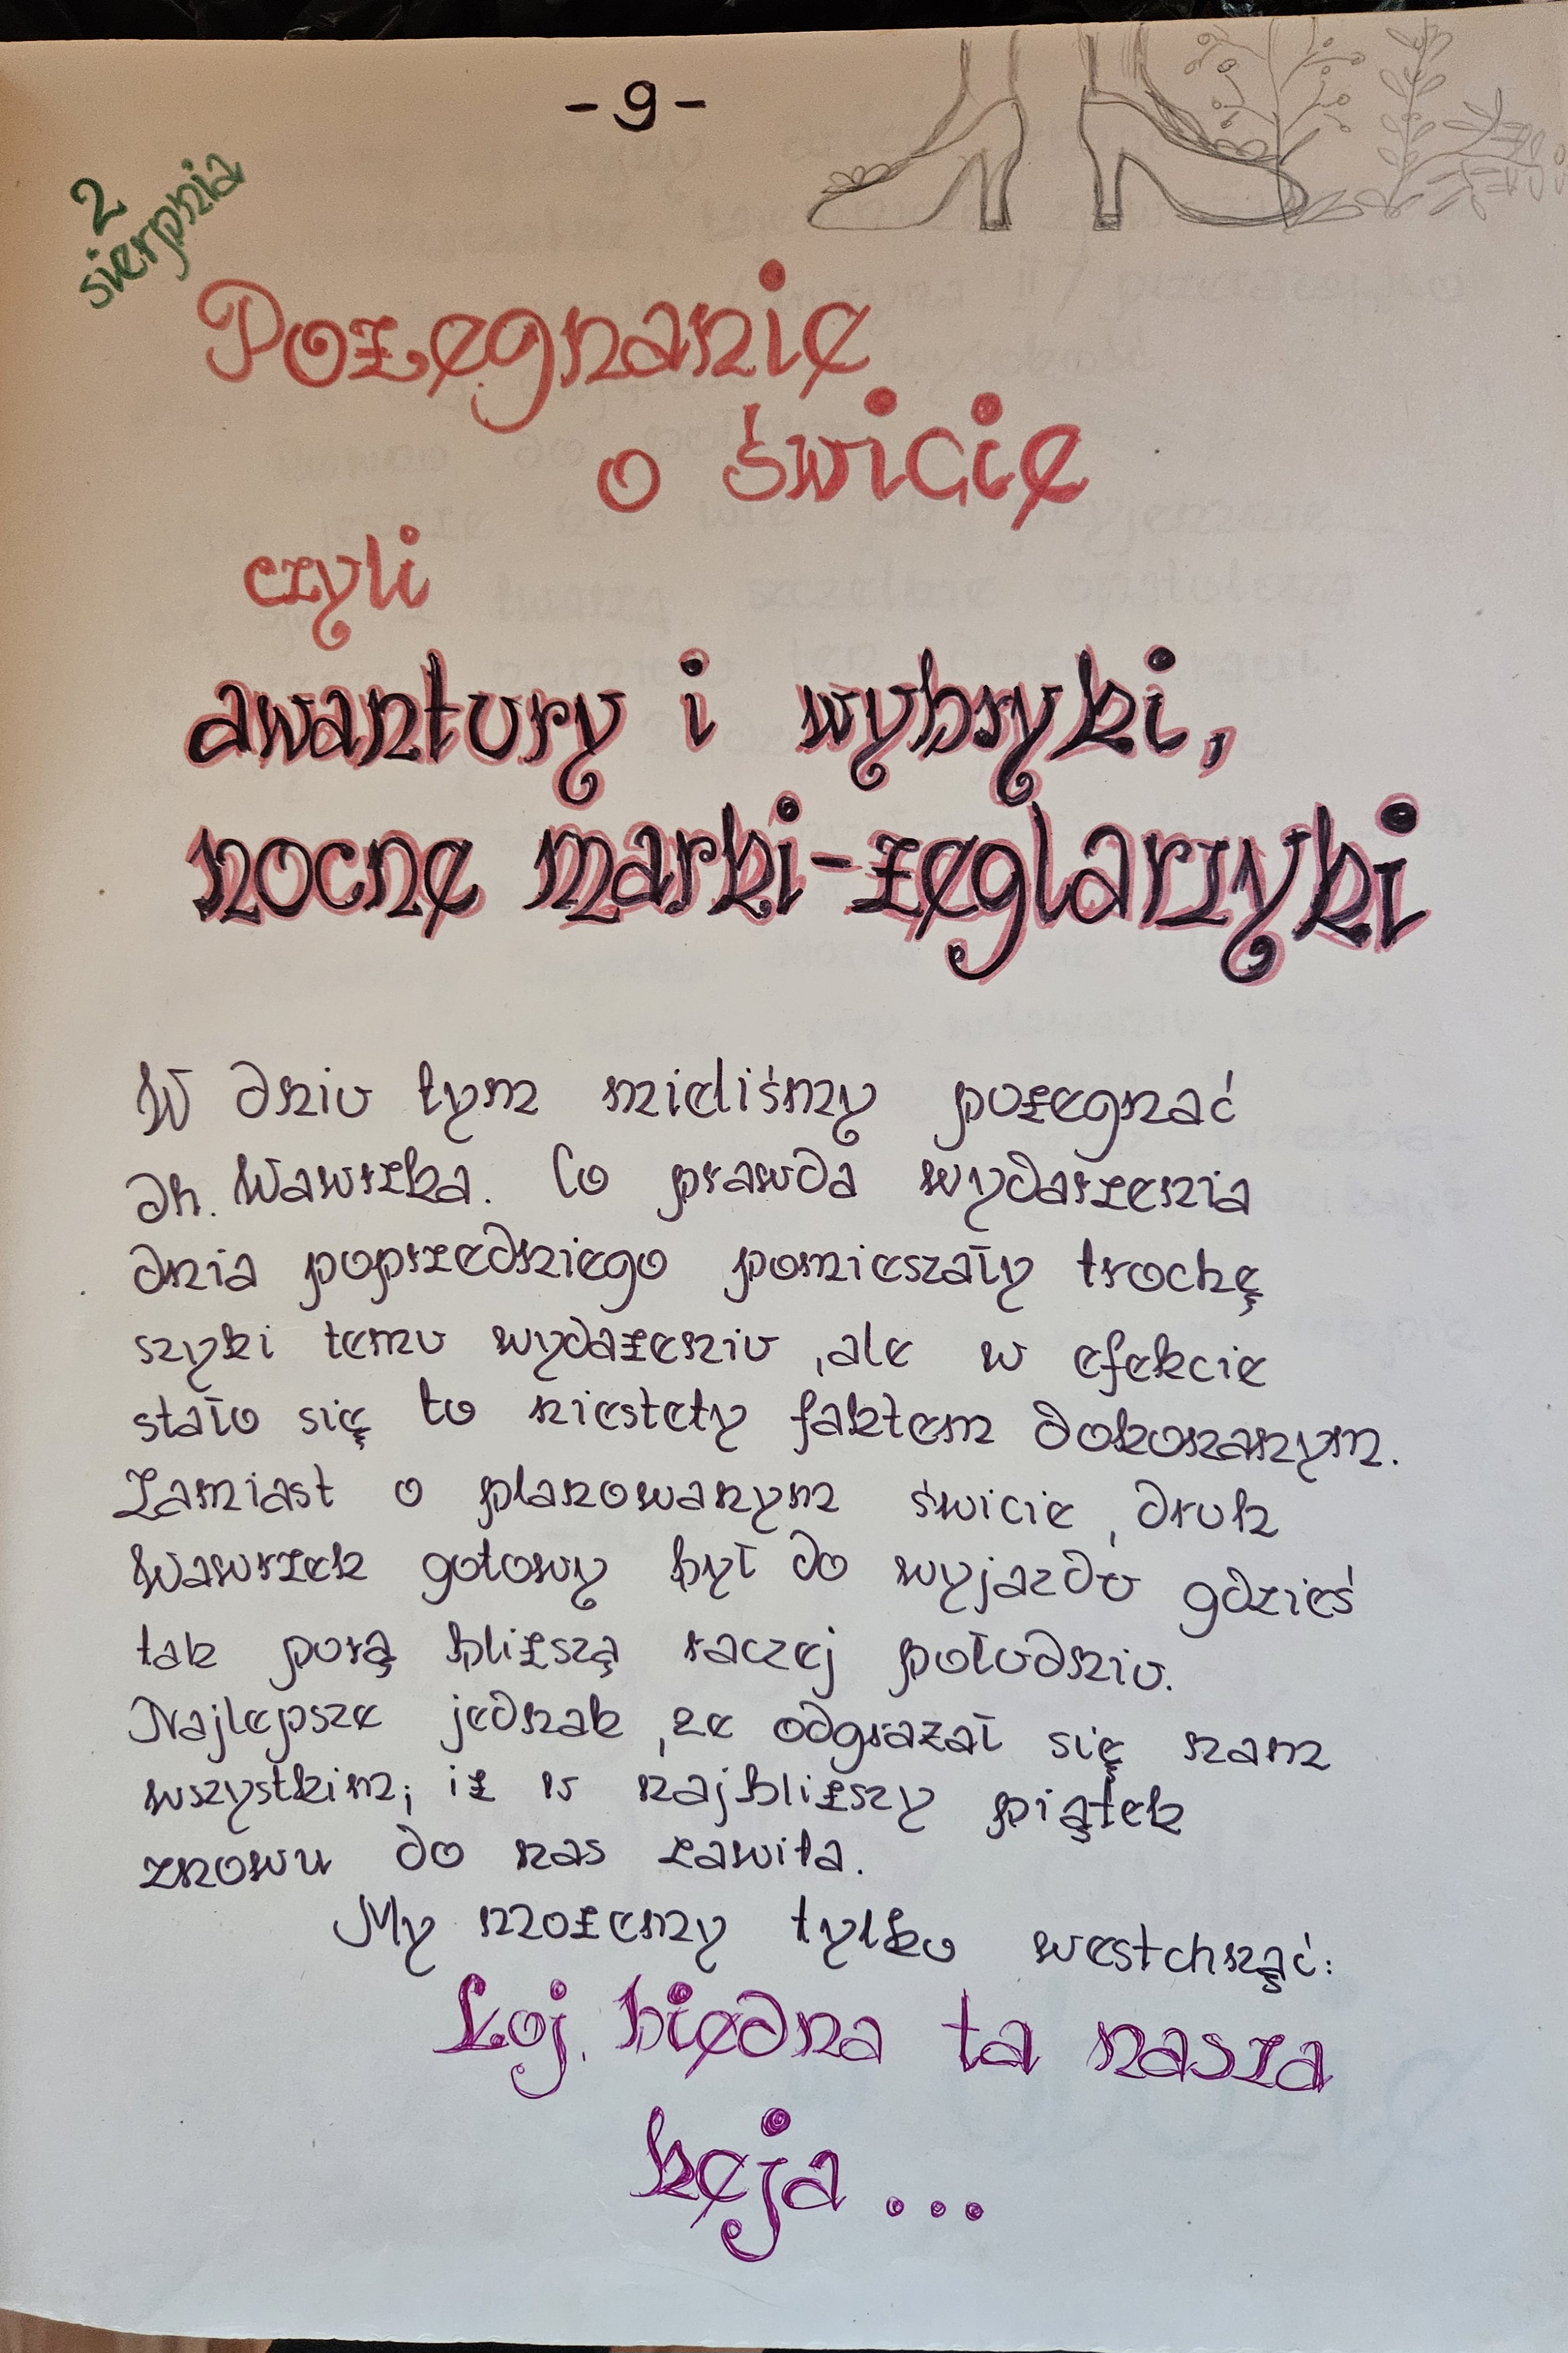 - 9 -
2
sierpnia
Pożegnanie
o świcie
czyli
awantury i wybryki,
nocne marki-żeglarzyki
W dniu tym mieliśmy pożegnać
dh. Wawrzka. Co prawda wydarzenia
dnia poprzedniego pomieszały trochę
szyki temu wydażeniu, ale w efekcie
stało się to niestety faktem dokonanym.
Zamiast o planowanym świcie, druh
Wawrzek gotowy był do wyjazdu gdzieś
tak porą bliższą raczej południu.
Najlepsze jednak, że odgrażał się nam
wszystkim; iż w najbliższy piątek
znowu do nas zawita.
My możemy tylko westchnąć:
Łoj, biedna ta nasza
keja...